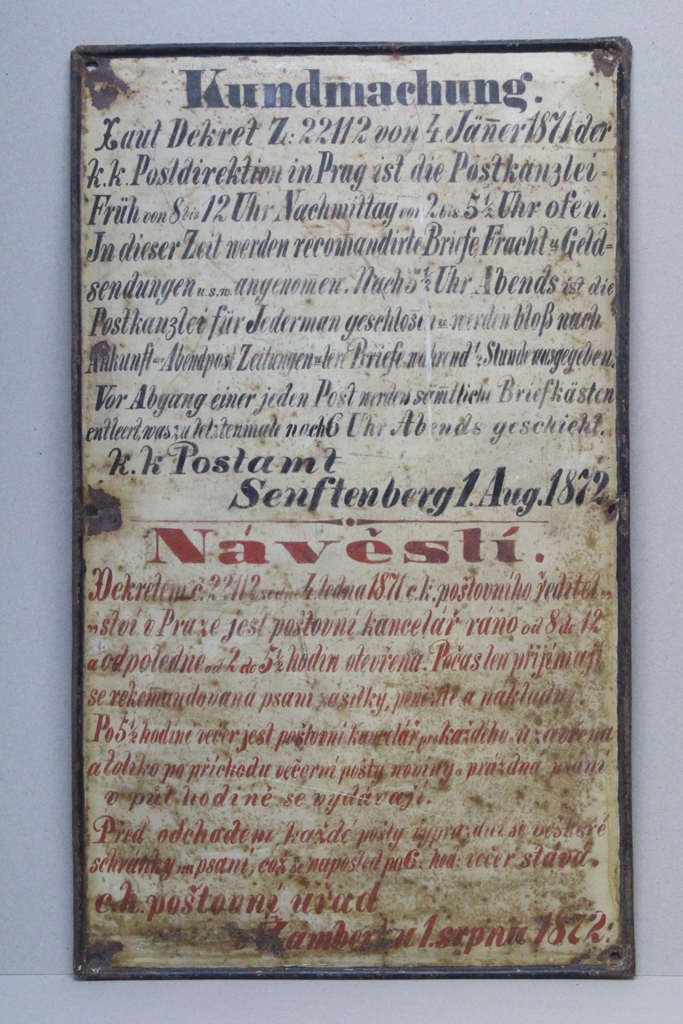 Kundmachung.
Laut Dekret Z: 22112 von 4. Jäner 1871 der
k. k. Postdirektion in Prag ist die Postkanzlei=
Früh von 8 bis 12 Uhr Nachmittag von 2 bis 5½ Uhr ofen.
In dieser Zeit werden recomandirte Briefe, Fracht u. Geld=
sendungen u.s.w. angenomen. Nach 5½ Uhr Abends ist die
Postkanzlei für Jederman geschlosen u. werden bloß nach
Ankunft der Abendpost Zeitungen u. lere Briefe während ½ Stunde ausgegeben.
Vor Abgang einer jeden Post werden sämtliche Briefkästen
entleert, was zu letztenmale nach 6 Uhr Abends geschieht.
k. k Postamt
Senftenberg 1. Aug. 1872.
Návěstí.
Dekretem č. 22112 4 ledna 1871 c. k. poštovního ředitel„
„ství v Praze jest poštovní kancelář ráno od 8 do 12
a odpoledne od 2 do 5½ hodin otevřena. Počas ten přijímají
se rekomandovaná psaní zásilky, peněžité a nákladní.
Po 5½ hodině večer jest poštovní kancelář pro každého uzavřena
a toliko po příchodu večerní pošty noviny a prázdná psaní
v půl hodině se vydávají.
Před odchodem každé pošty vyprázdní se veškeré
schránky na psaní, což se naposled po 6. hod: večer stává.
c. k. poštovní úřad
Žamberk u 1. srpna 1872.